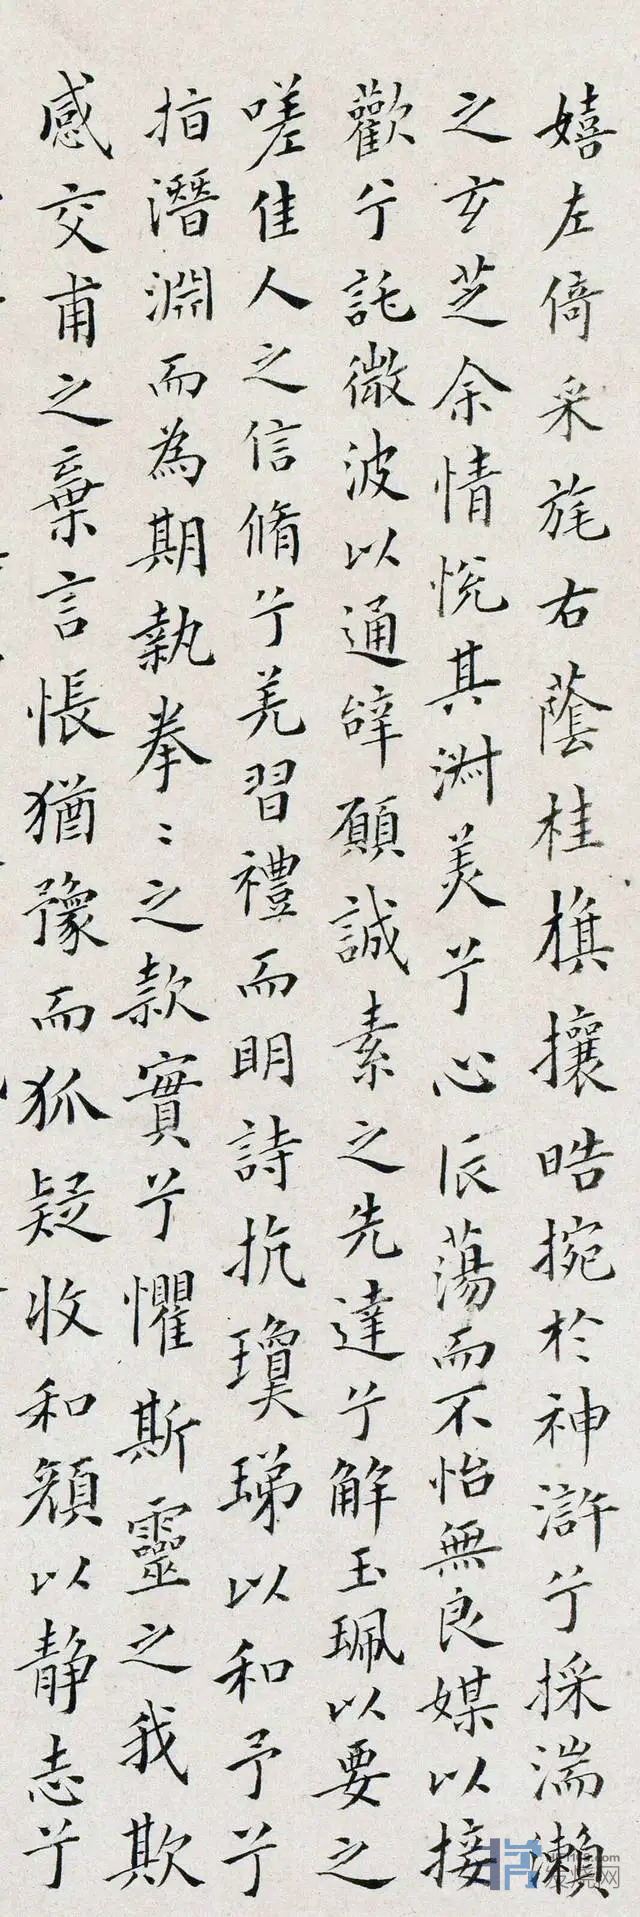 嬉左倚采旄右蔭桂旗攘皓捥於神滸兮採湍瀨
之玄芝余情悅其淑美兮心辰蕩而不怡無良媒以接
歡兮託微波以通辝願誠素之先達兮解玉珮以要之
嗟佳人之信脩兮羌習禮而明詩抗瓊珶以和予兮
指潛淵而為期執拳〻之款實兮懼斯靈之我欺
感交甫之棄言悵猶豫而狐疑收和顏以靜志兮
发烧网